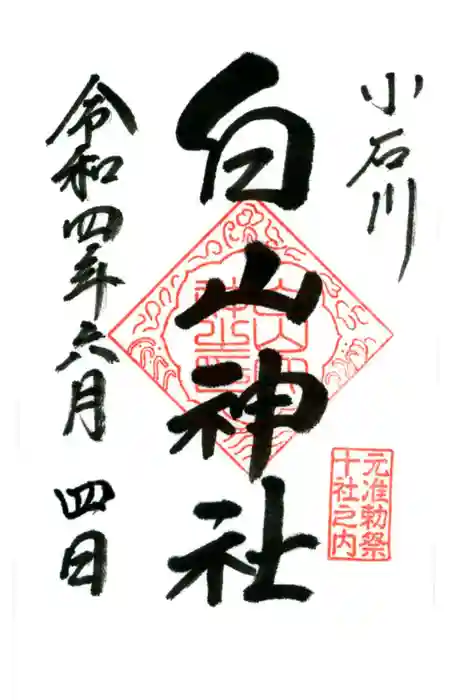 小石川
元准勅祭
十社之内
白山神社
令和四年六月 四日